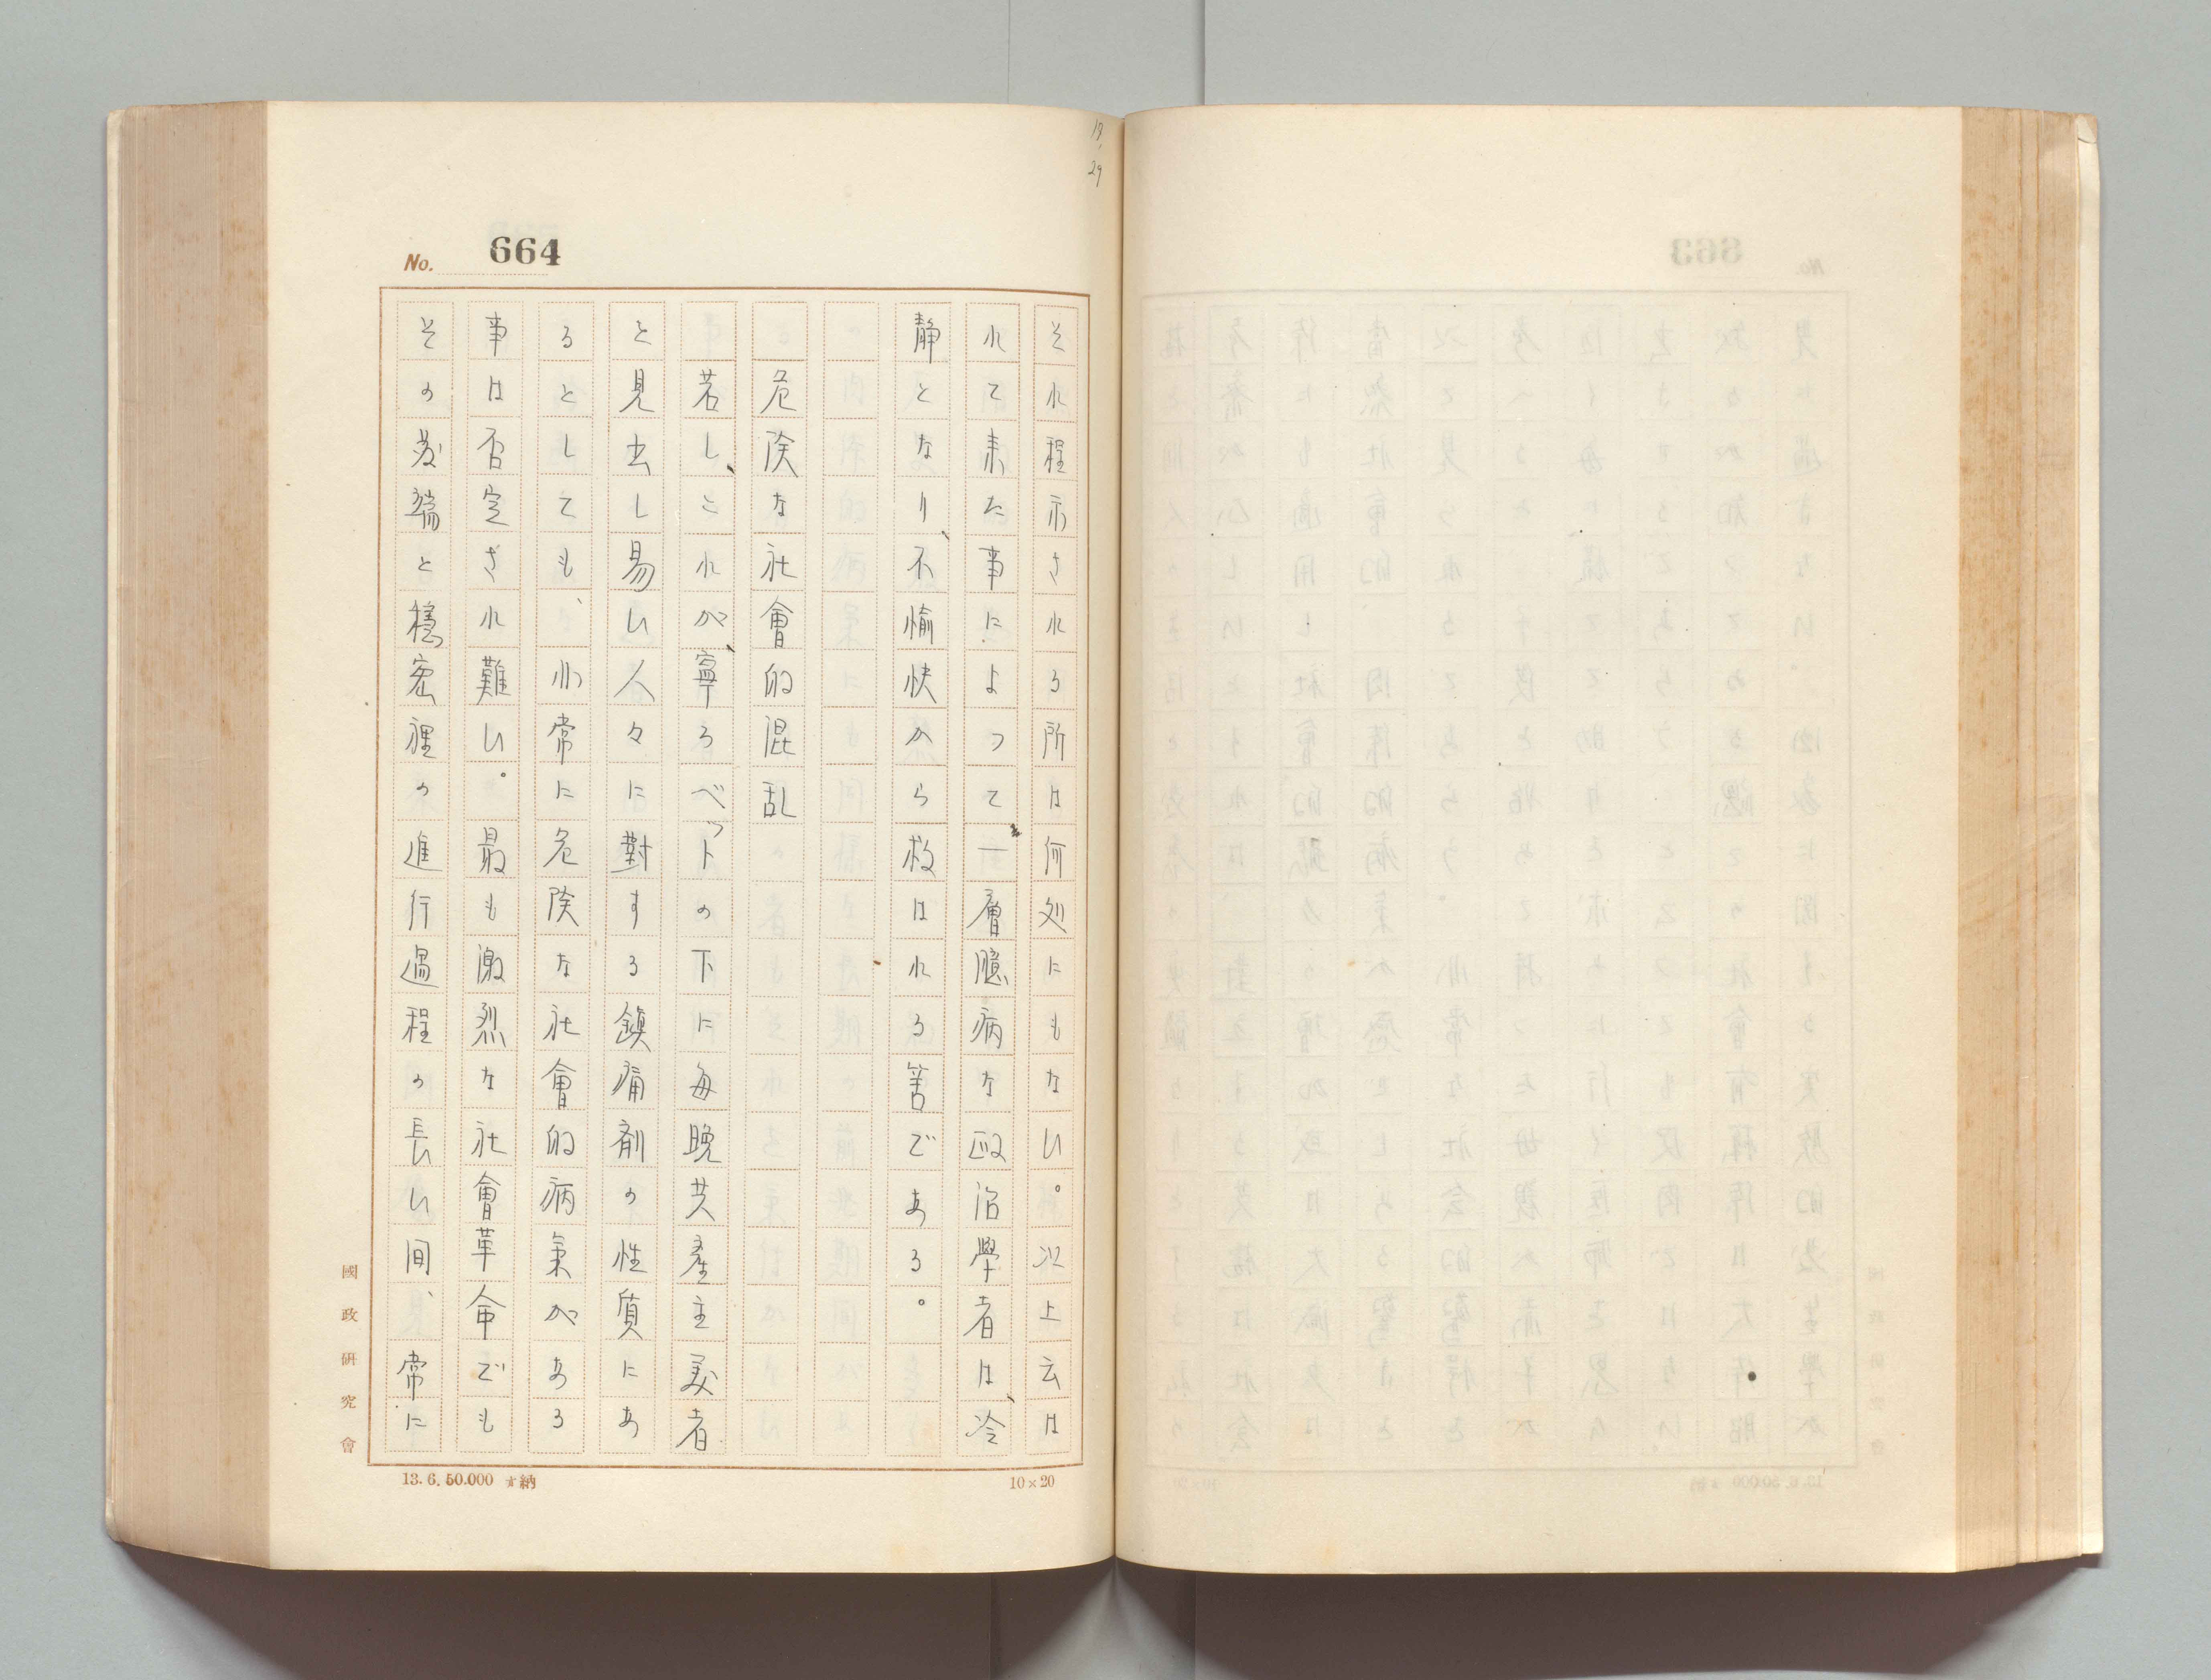 17,
29
No. 664
それ程示される所は何処にもない。以上云は
れて来た事によつて一層臆病な政治學者は、冷
静となり、不愉快から救はれる筈である。
危険な社會的混乱
若し、これが、寧ろベットの下に毎晩共産主義者
を見出し易い人々に對する鎮痛剤の性質にあ
るとしても、非常に危険な社會的病気がある
事は否定され難い。最も激烈な社會革命でも
その発端と穏密裡の進行過程の長い間、常に
國政研究會
10×20
13.6.50.000 納